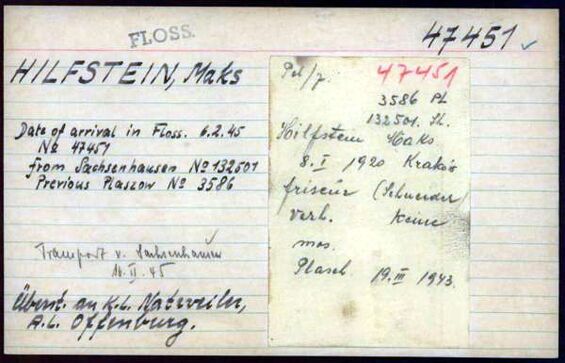 FLOSS.
47451
HILFSTEIN, Maks
Date of arrival in Floss. 6.2.45
No 47451
from Sachsenhausen No 132501
Previous Plaszow No 3586
Transport v. Sachsenhausen
Überst. an K.L. Natzweiler,
A.L. Offenburg.
Pol/J.
47451
3586 Pl.
132501. Sh.
Hilfstein Maks
8. I 1920 Kraków
friseur (Schneider
verh. keine
mos.
Plasch. 19. III 1943.